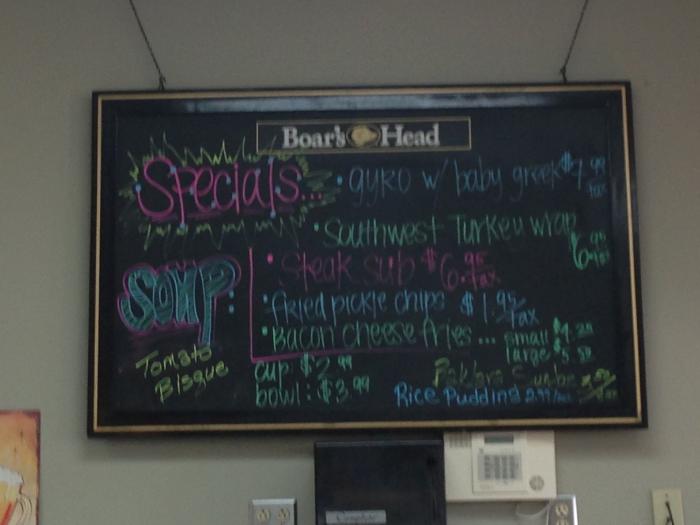 Boar's Head
Specials...
• gyro w/ baby greek $7.99 tax
• Southwest Turkey wrap $6.95
• Steak sub $6.95 tax
• fried pickle chips $1.95 tax
• Bacon cheese fries ... small $4.25
large $5.50
SOUP:
Tomato
Bisque
cup: $2.99
bowl: $3.99
Baklava
Rice Pudding 2.99